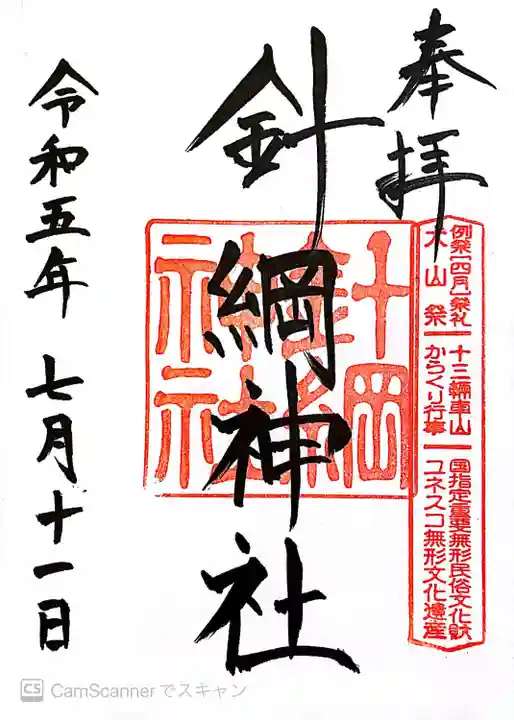 奉拝
例祭「四月」祭礼 十三輛車山 国指定重要無形民俗文化財
犬山祭 からくり行事 ユネスコ無形文化遺産
針綱神社
針綱
神社
令和五年 七月十一日
CS CamScannerでスキャン